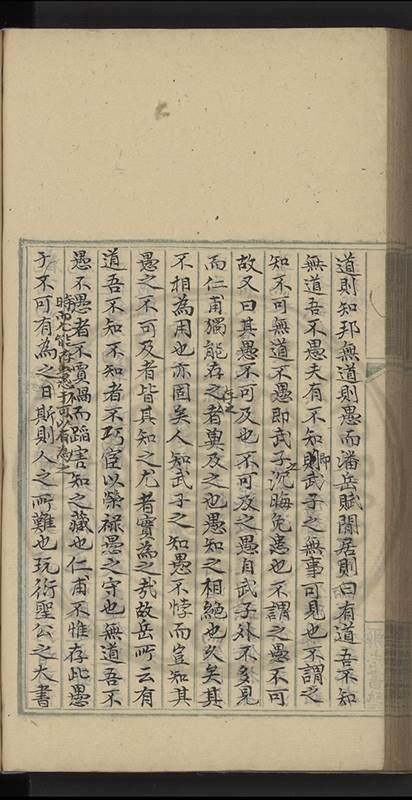 道則知邦無道則愚而潘岳賦閒居則曰有道吾不知
無道吾不愚夫有不知則武子之無事可見也不謂之
知不可無道不愚即武子之沉晦免患也不謂之愚不可
故又曰其愚不可及也不可及之愚自武子外不多見
而仁甫獨能存之者奠及之也愚知之相絶也久矣其
不相為用也亦固矣人知武子之知愚不悖而豈知其
愚之不可及者皆其知之尤者實為之哉故岳所云有
道吾不知不知者不巧宦以榮禄愚之守也無道吾不
愚不愚者不賈禍而蹈害知之藏也仁甫不惟存此愚
于不可有為之日斯則人之所難也玩衍聖公之大書